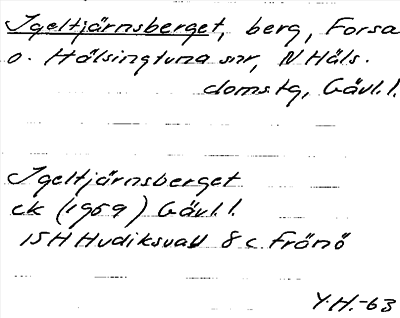 Igeltjärnsberget, berg, Forsa
o. Hälsingtuna snr, N Häls.
domstg, Gävl.l.
Igeltjärnsberget
ek (1959) Gävl.l.
15H Hudiksvall 8c Frönö
Y.H.-63